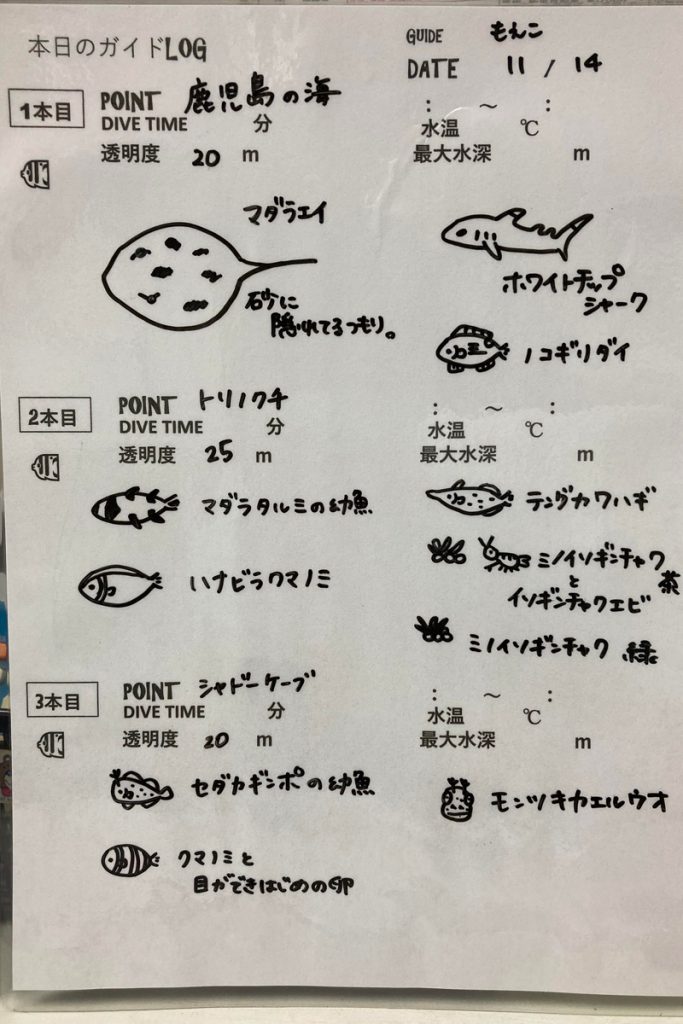 本日のガイドLOG
GUIDE もんこ
DATE 11 / 14
1本目
POINT 鹿児島の海
DIVE TIME 分
: ～ :
水温 ℃
透明度 20 m
最大水深 m
マダラエイ
砂に
隠れてるつもり。
ホワイトチップ
シャーク
ノコギリダイ
2本目
POINT トリノクチ
DIVE TIME 分
: ～ :
水温 ℃
透明度 25 m
最大水深 m
マダラタルミの幼魚
ハナビラクマノミ
テングカワハギ
ミノイソギンチャク
と
イソギンチャクエビ
茶
ミノイソギンチャク 緑
3本目
POINT シャドーケーブ
DIVE TIME 分
: ～ :
水温 ℃
透明度 20 m
最大水深 m
セダカギンポの幼魚
クマノミと
目ができはじめの卵
モンツキカエルウオ